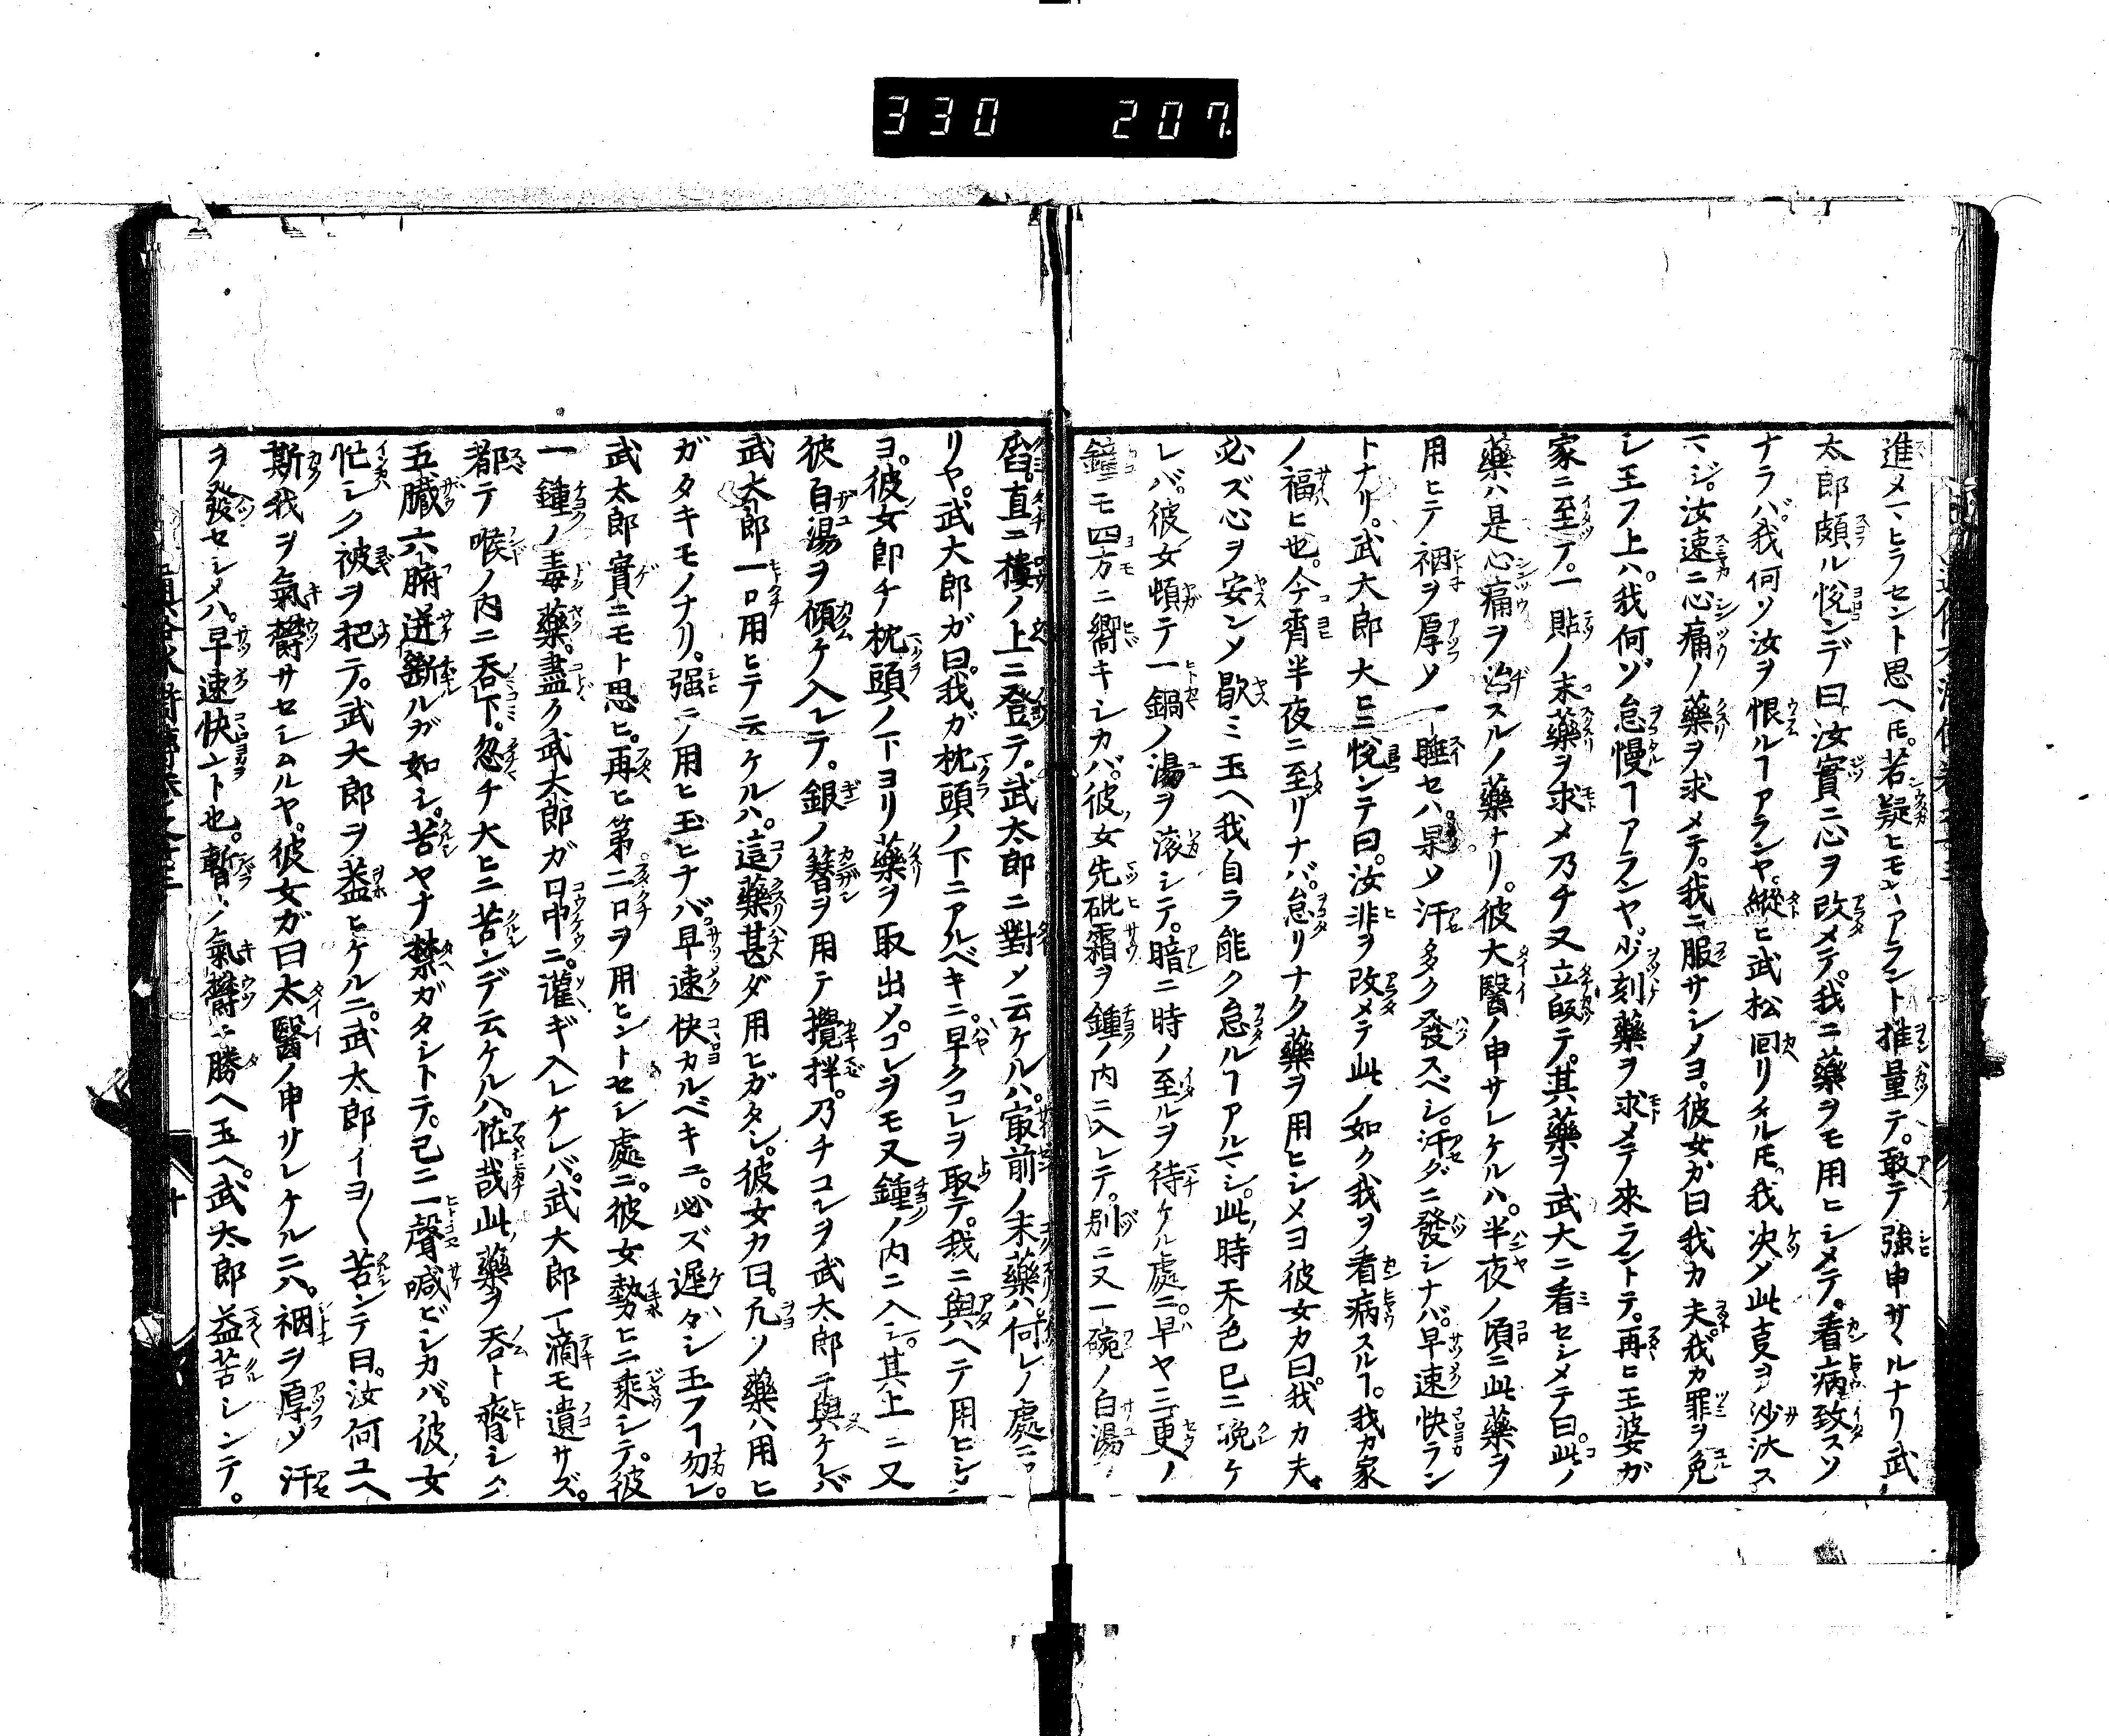 330 207
進メマヒラセント思ヘ𪜈。若疑ヒモヤアラント推量テ。敢テ強申サヾルナリ武
太郎頗ル悅ンデ曰汝實ニ心ヲ改メテ。我ニ藥ヲモ用ヒシメテ。看病致スソ
ナラバ。我何ソ汝ヲ恨ルヿアランヤ。縱ヒ武松囘リタル𪜈。我决〆此㕝ヲ沙汰ス
マジ。汝速ニ心痛ノ藥ヲ求メテ。我ニ服サシメヨ。彼女ガ曰我カ夫。我カ罪ヲ免
シ玉フ上ハ。我何ゾ怠慢ヿアランヤ。少刻藥ヲ求メテ來ラントテ。再ヒ王婆ガ
家ニ至テ。一貼ノ末藥ヲ求メ乃チ又立皈テ。其藥ヲ武大ニ看セシメテ曰。此ノ
藥ハ是心痛ヲ治スルノ藥ナリ。彼大醫ノ申サレケルハ。半夜ノ頃ニ此藥ヲ
用ヒテ裀ヲ厚〆一睡セハ。果〆汗多ク發スベシ。汗ダニ發シナバ。早速快ラン
トナリ。武大郎大ヒニ悅ンテ曰。汝非ヲ改メテ此ノ如ク我ヲ看病スルヿ。我カ家
ノ福ヒ也。今宵半夜ニ至リナバ。怠リナク藥ヲ用ヒシメヨ彼女カ曰。我カ夫
必ズ心ヲ安ン〆歇ミ玉ヘ我自ラ能ク怠ルヿアルマシ。此時天色已ニ晚ケ
レバ。彼女頓テ一鍋ノ湯ヲ滚シテ。暗ニ時ノ至ルヲ待ケル處ニ。早ヤ三更ノ
鐘モ四方ニ嚮キシカバ。彼女先砒霜ヲ鍾ノ内ニ入レテ。別ニ又一碗ノ白湯
ヲ。直ニ樓ノ上ニ登テ。武太郎ニ對〆云ケルハ。㝡前ノ末藥ハ何レノ處ニア
リヤ。武大郎ガ曰。我ガ枕頭ノ下ニアルベキニ。早クコレヲ取テ。我ニ與ヘテ用ヒシメ
ヨ。彼女即チ枕頭ノ下ヨリ藥ヲ取出〆。コレヲモ又鍾ノ内ニ入シ。其上ニ又
彼白湯ヲ傾ケ入レテ。銀ノ簪ヲ用テ攪拌。乃チコレヲ武太郎ニ與ケレバ
武太郎一口用ヒテ云ケルハ。這藥甚ダ用ヒガタシ。彼女カ曰。凢ソ藥ハ用ヒ
ガタキモノナリ。强ニ用ヒ玉ヒナバ。早速快カルベキニ。必ズ遲タシ玉フヿ勿レ。
武太郎實ニモト思ヒ。再ヒ第二口ヲ用ヒントセシ處ニ。彼女勢ヒニ乘シテ。彼
一鍾ノ毒藥。盡ク武太郎ガ口中ニ。灌ギ入レケレバ。武大郎一滴モ遺サズ。
都テ喉ノ内ニ呑下。忽チ大ヒニ苦ンデ云ケルハ。怪哉此藥ヲ呑ト齊シク
五臓六腑迸斷ルガ如シ。苦ヤナ禁ガタシトテ。已ニ一聲喊ビシカバ。彼女
忙シク被ヲ把テ。武大郎ヲ蓋ヒケルニ。武太郎イヨ〱苦ンテ曰。汝何ユヘ
斯我ヲ氣欝サセシムルヤ。彼女ガ曰太醫ノ申サレケルニハ。裀ヲ厚〆汗
ヲ發セシメハ。早速快ニト也。暫ク氣欝ニ勝ヘ玉ヘ。武太郎益苦シンテ。